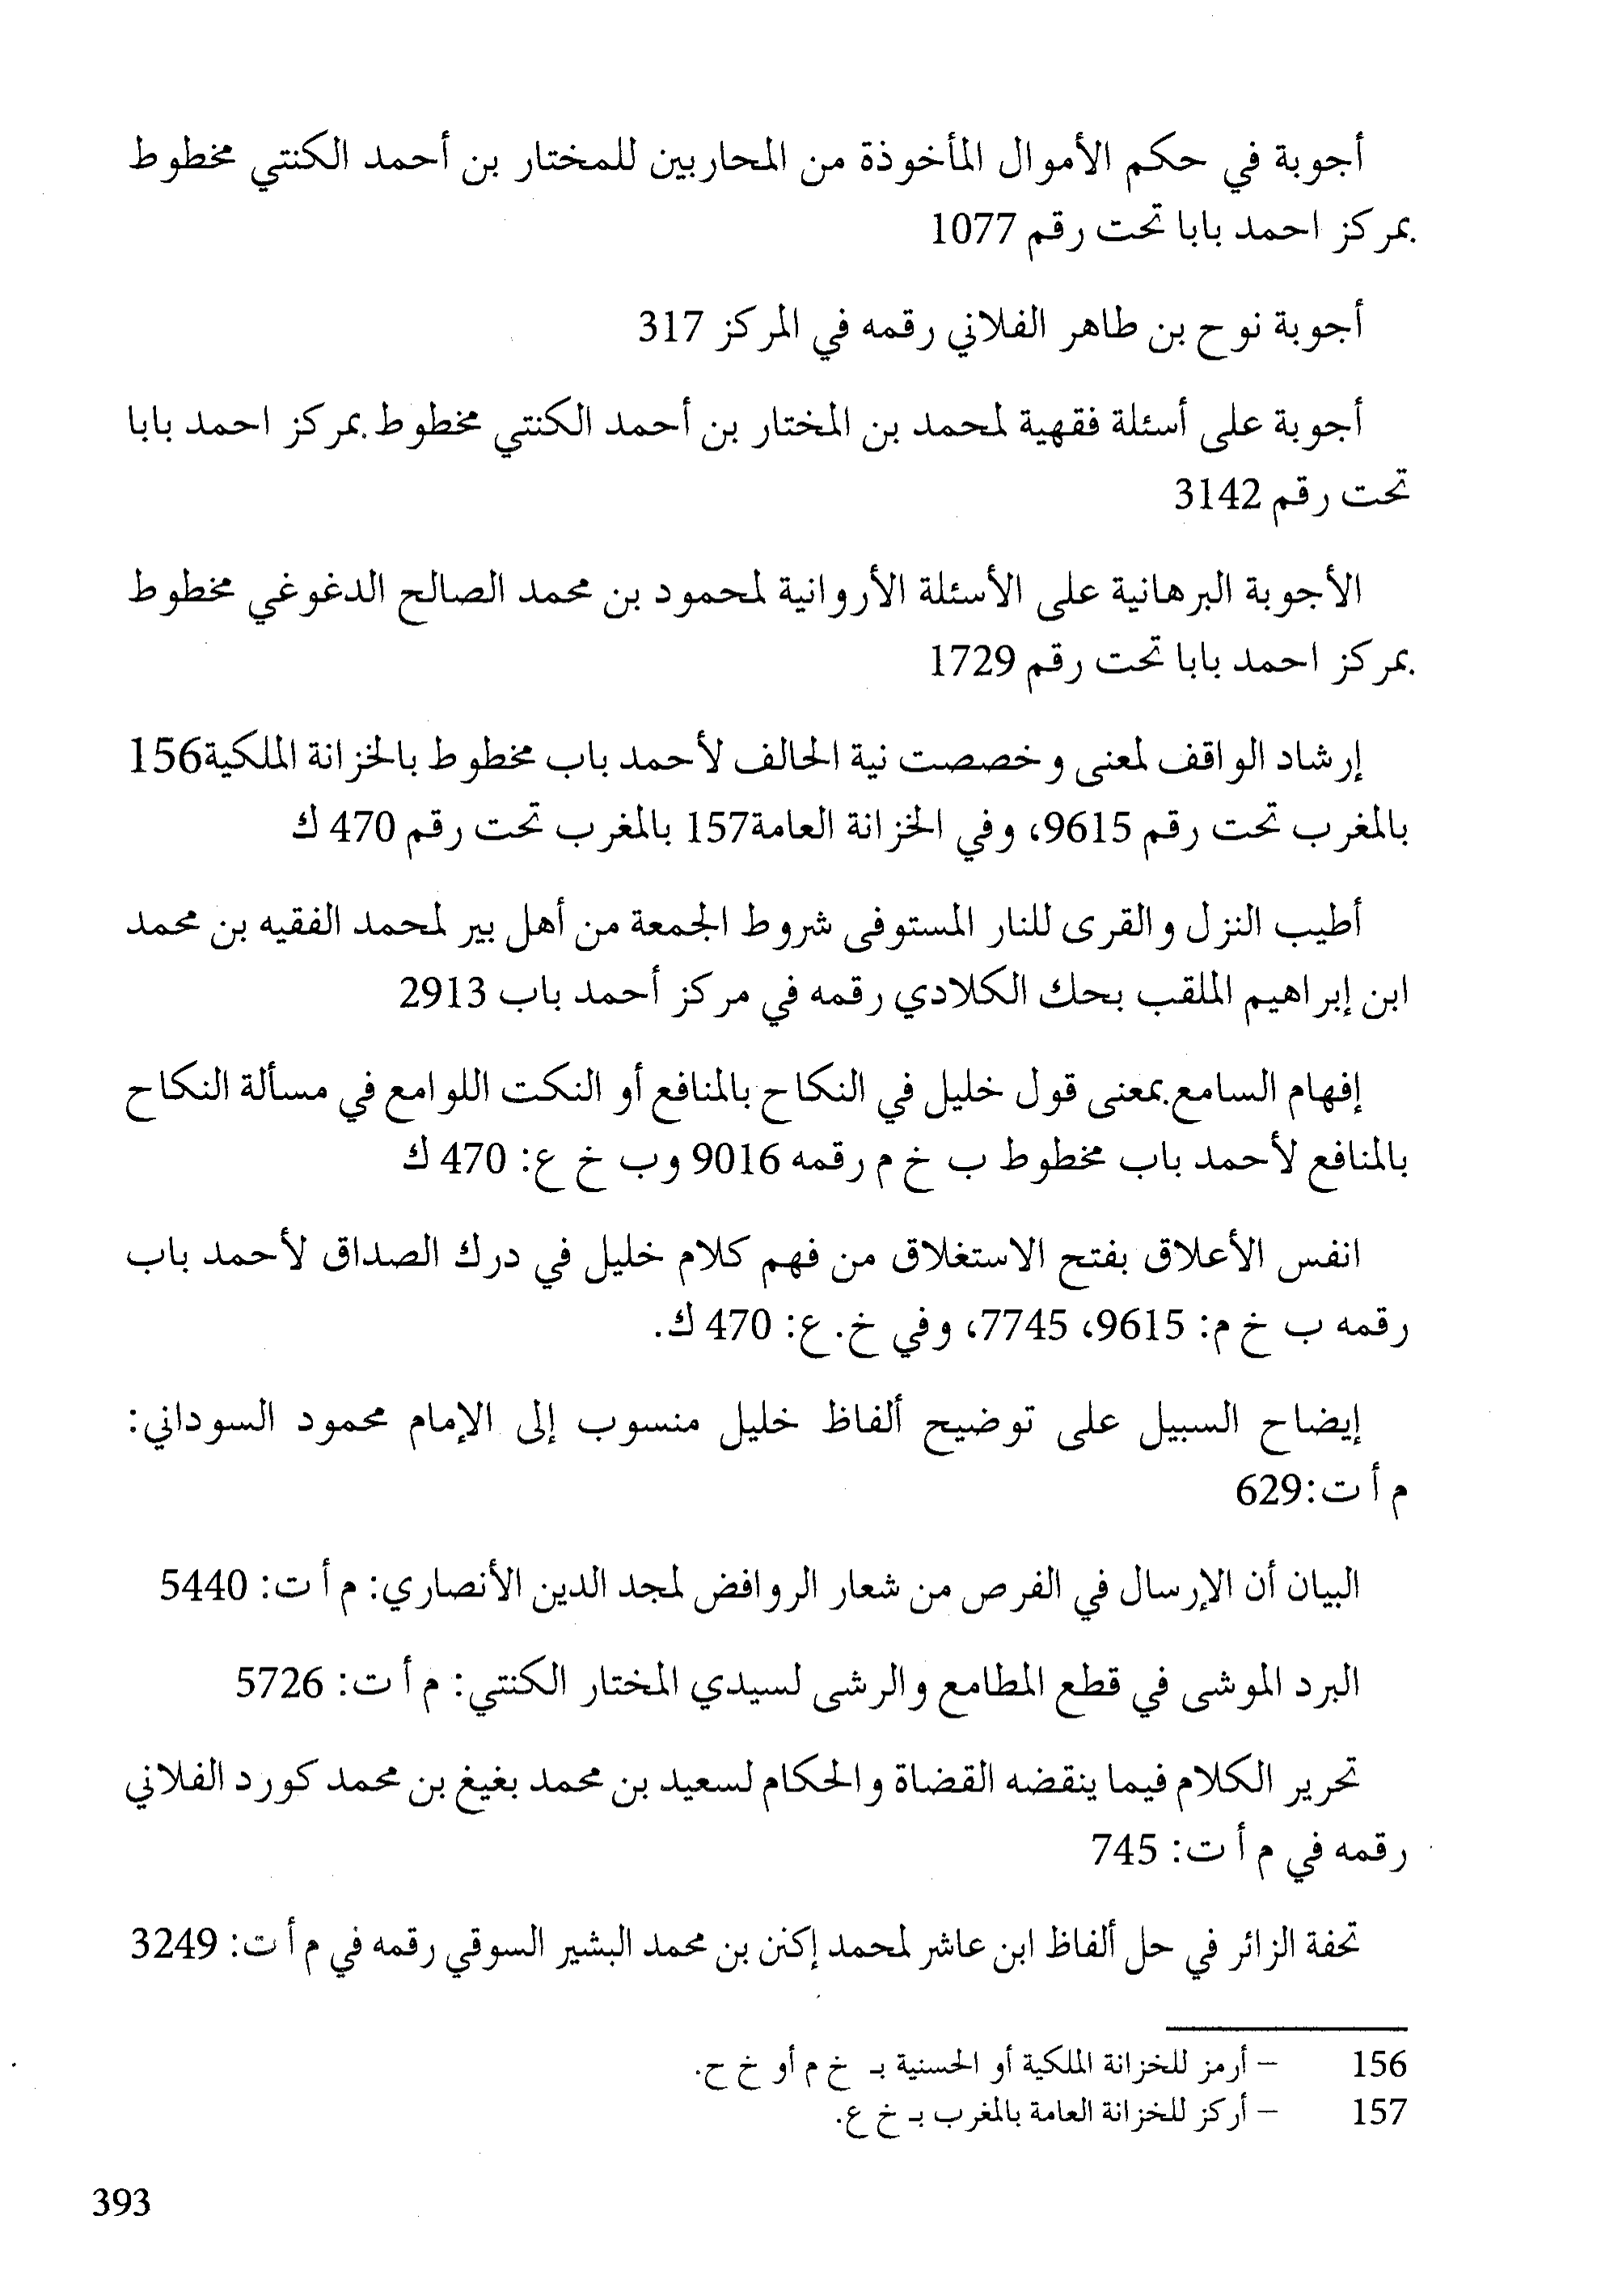 أجوبة في حكم الأموال المأخوذة من المحاربين للمختار بن أحمد الكنتي مخطوط
بمركز احمد بابا تحت رقم 1077
أجوبة نوح بن طاهر الفلاني رقمه في المركز 317
أجوبة على أسئلة فقهية لمحمد بن المختار بن أحمد الكنتي مخطوط بمركز احمد بابا
تحت رقم 3142
الأجوبة البرهانية على الأسئلة الأروانية لمحمود بن محمد الصالح الدغوغي مخطوط
بمركز احمد بابا تحت رقم 1729
إرشاد الواقف لمعنى وخصصت نية الحالف لأحمد باب مخطوط بالخزانة الملكية156
بالمغرب تحت رقم 9615، وفي الخزانة العامة157 بالمغرب تحت رقم 470 ك
أطيب النزل والقرى للنار المستوفى شروط الجمعة من أهل بير لمحمد الفقيه بن محمد
ابن إبراهيم الملقب بحك الكلادي رقمه في مركز أحمد باب 2913
إفهام السامع بمعنى قول خليل في النكاح بالمنافع أو النكت اللوامع في مسألة النكاح
بالمنافع لأحمد باب مخطوط ب خ م رقمه 9016 وب خ ع: 470 ك
انفس الأعلاق بفتح الاستغلاق من فهم كلام خليل في درك الصداق لأحمد باب
رقمه ب خ م: 9615، 7745، وفي خ. ع: 470 ك.
إيضاح السبيل على توضيح ألفاظ خليل منسوب إلى الإمام محمود السوداني:
م أ ت:629
البيان أن الإرسال في الفرص من شعار الروافض لمجد الدين الأنصاري: م أ ت: 5440
البرد الموشى في قطع المطامع والرشى لسيدي المختار الكنتي: م أ ت: 5726
تحرير الكلام فيما ينقضه القضاة والحكام لسعيد بن محمد بغيغ بن محمد كورد الفلاني
رقمه في م أ ت: 745
تحفة الزائر في حل ألفاظ ابن عاشر لمحمد إكنن بن محمد البشير السوقي رقمه في م أ ت: 3249
156 – أرمز للخزانة الملكية أو الحسنية بـ خ م أو خ ح.
157 – أركز للخزانة العامة بالمغرب بـ خ ع.
393